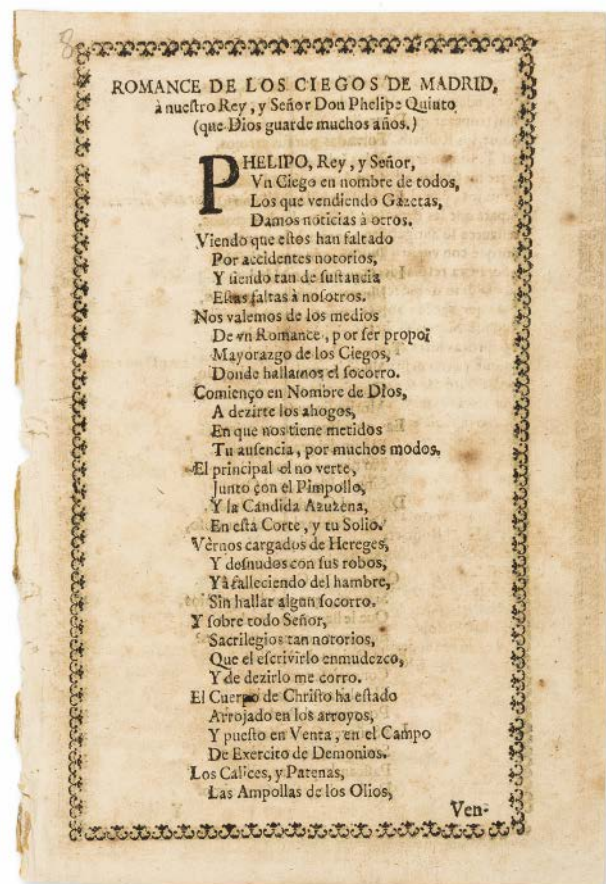 8
ROMANCE DE LOS CIEGOS DE MADRID,
à nueſtro Rey, y Señor Don Phelipe Quinto
(que Dios guarde muchos años.)
PHELIPO, Rey, y Señor,
Vn Ciego en nombre de todos,
Los que vendiendo Gazetas,
Damos noticias à otros.
Viendo que eſtos han faltado
Por accidentes notorios,
Y ſiendo tan de ſuſtancia
Eſtas faltas à noſotros.
Nos valemos de los medios
De vn Romance, por ſer propoi
Mayorazgo de los Ciegos,
Donde hallamos el ſocorro.
Comienço en Nombre de Dios,
A dezirte los ahogos,
En que nos tiene metidos
Tu auſencia, por muchos modos.
El principal el no verte,
Junto con el Pimpollo,
Y la Candida Azuzena,
En eſta Corte, y tu Solio.
Vèrnos cargados de Hereges,
Y deſnudos con ſus robos,
Yà falleciendo del hambre,
Sin hallar algun ſocorro.
Y ſobre todo Señor,
Sacrilegios tan notorios,
Que el eſcrivirlo enmudezco,
Y de dezirlo me corro.
El Cuerpo de Chriſto ha eſtado
Arrojado en los arroyos,
Y pueſto en Venta, en el Campo
De Exercito de Demonios.
Los Calices, y Patenas,
Las Ampollas de los Olios,
Ven-